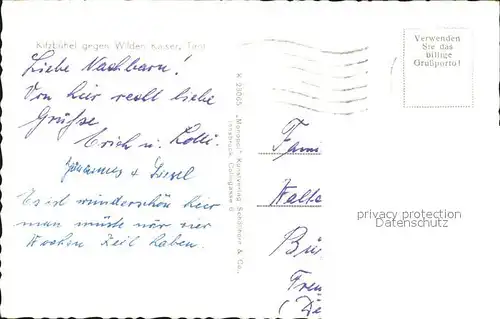 Kitzbühel gegen Wilden Kaiser, Tirol
Liebe Nachbarn!
Von hier recht liebe
Grüße
Erich u. Lotti.
Johannes & Liesel
Es ist wunderschön hier
man müßte nur vier
Wochen Zeit haben.
K 29565 "Monopol" Kunstverlag Schöllhorn & Co.,
Innsbruck, Colingasse 6
Verwenden
Sie das
billige
Grußporto!
Fam
Walte
Frem
privacy protection
Datenschutz